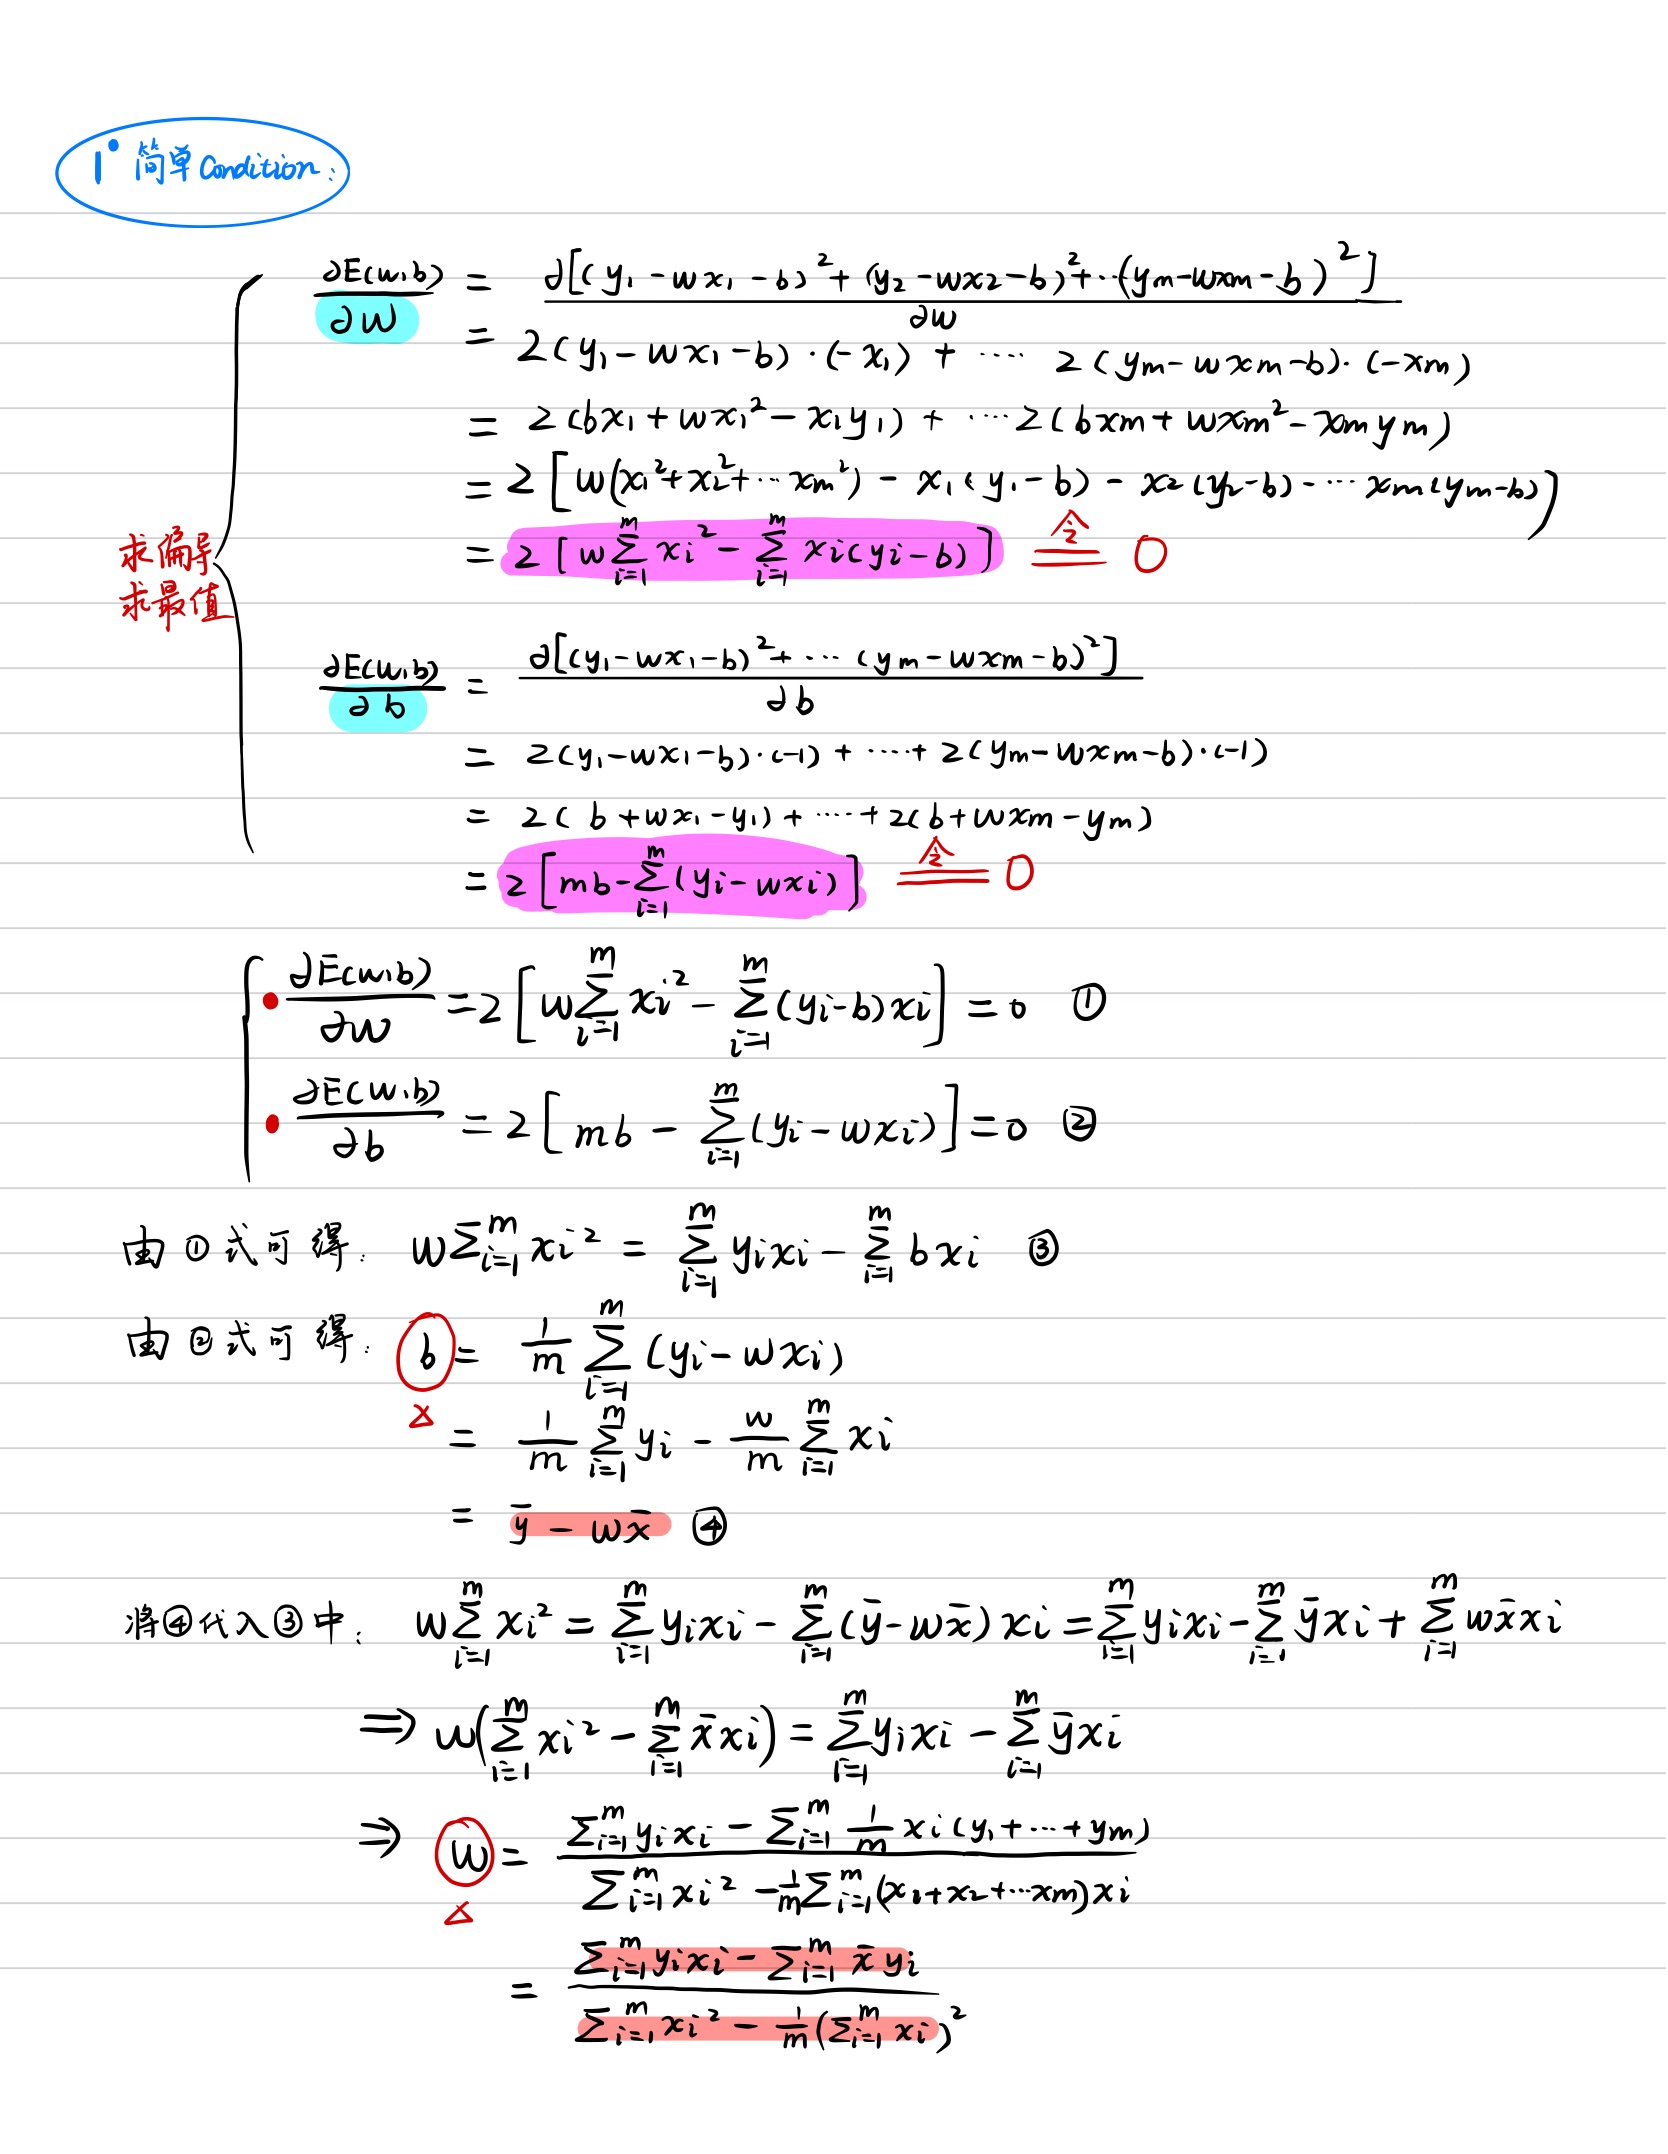 1° 简单Condition:
∂E(w,b)/∂w = ∂[(y₁-wx₁-b)²+(y₂-wx₂-b)²+··(ym-wxm-b)²]/∂w
= 2(y₁-wx₁-b)·(-x₁) + ···· 2(ym-wxm-b)·(-xm)
= 2(bx₁+wx₁²-x₁y₁) + ····2(bxm+wxm²-xmym)
= 2[w(x₁²+x₂²+···xm²) - x₁(y₁-b) - x₂(y₂-b) - ··· xm(ym-b)]
= 2[w∑_{i=1}^{m} xi² - ∑_{i=1}^{m} xi(yi-b)] 令= 0
求偏导
求最值
∂E(w,b)/∂b = ∂[(y₁-wx₁-b)²+···(ym-wxm-b)²]/∂b
= 2(y₁-wx₁-b)·(-1) + ····+ 2(ym-wxm-b)·(-1)
= 2(b+wx₁-y₁) + ····+ 2(b+wxm-ym)
= 2[mb-∑_{i=1}^{m}(yi-wxi)] 令= 0
∂E(w,b)/∂w = 2[w∑_{i=1}^{m} xi² - ∑_{i=1}^{m}(yi-b)xi] = 0 ①
∂E(w,b)/∂b = 2[mb - ∑_{i=1}^{m}(yi-wxi)] = 0 ②
由①式可得: w∑_{i=1}^{m} xi² = ∑_{i=1}^{m} yixi - ∑_{i=1}^{m} bxi ③
由②式可得: b = 1/m ∑_{i=1}^{m} (yi-wxi)
= 1/m ∑_{i=1}^{m} yi - w/m ∑_{i=1}^{m} xi
= ȳ - wx̄ ④
将④代入③中: w∑_{i=1}^{m} xi² = ∑_{i=1}^{m} yixi - ∑_{i=1}^{m}(ȳ-wx̄)xi = ∑_{i=1}^{m} yixi - ∑_{i=1}^{m} ȳxi + ∑_{i=1}^{m} wx̄xi
⇒ w(∑_{i=1}^{m} xi² - ∑_{i=1}^{m} x̄xi) = ∑_{i=1}^{m} yixi - ∑_{i=1}^{m} ȳxi
⇒ w = (∑_{i=1}^{m} yixi - ∑_{i=1}^{m} 1/m xi(y₁+···+ym))/(∑_{i=1}^{m} xi² - 1/m ∑_{i=1}^{m}(x₁+x₂+···xm)xi)
= (∑_{i=1}^{m} yixi - ∑_{i=1}^{m} x̄yi)/(∑_{i=1}^{m} xi² - 1/m(∑_{i=1}^{m} xi)²)